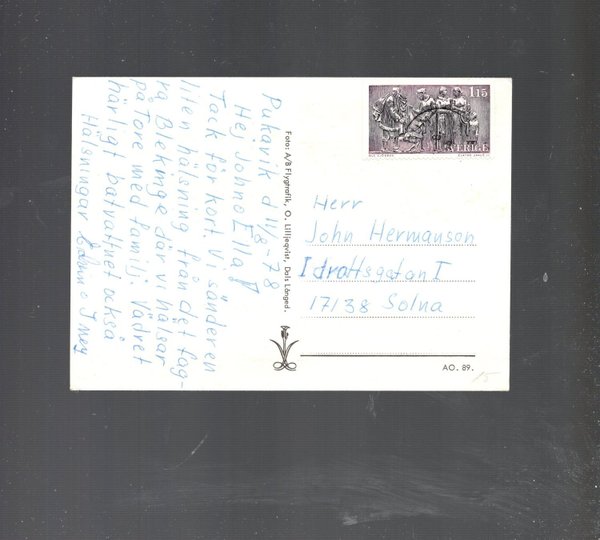 Pukavik d 11/8-78
Hej John o Ella!
Tack för kort. Vi sänder en
liten hälsning från det fag-
ra Blekinge där vi hälsar
på Tore med familj. Vädret
härligt batvattnet också
Hälsningar
Foto: A/B Flygtrafik, O. Lilljeqvist, Dals Långed.
1.15
SVERIGE
Herr
John Hermanson
Idrottsgatan 1
17138 Solna
AO. 89.
15